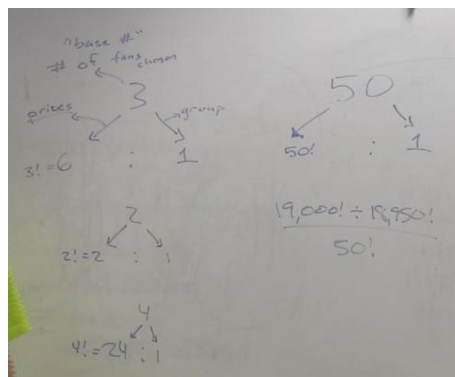 "base #"
# of fans chosen
3
prizes
group
3! = 6 : 1
2
2! = 2 : 1
4
4! = 24 : 1
50
50! : 1
19,000! ÷ 18,950!
50!